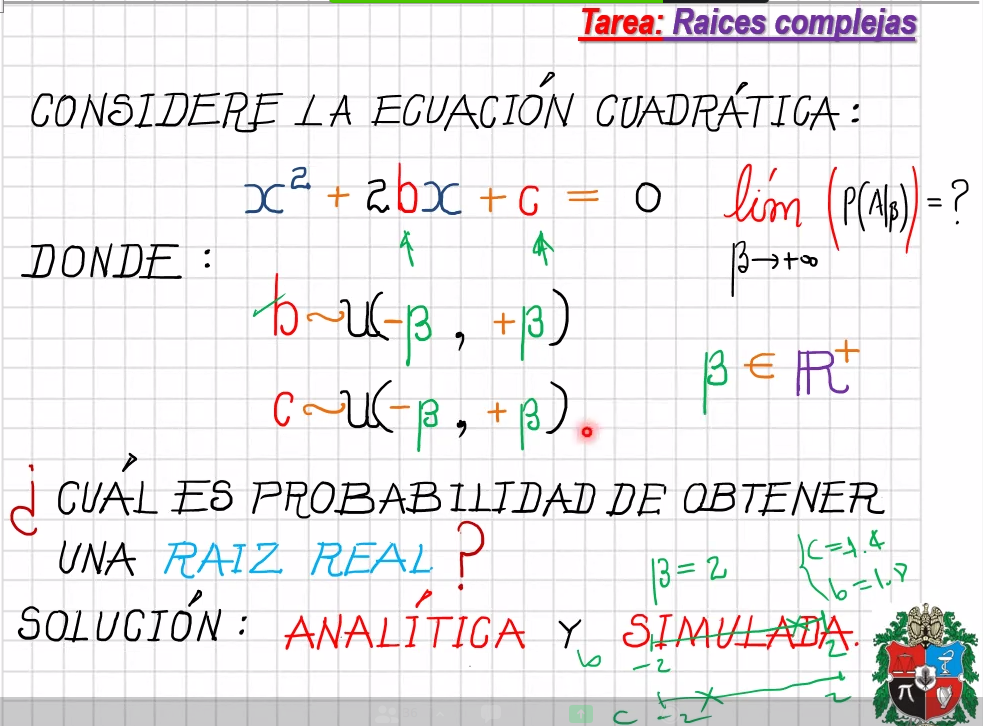 Tarea: Raices complejas
CONSIDERE LA ECUACIÓN CUADRÁTICA:
x² + 2bx + c = 0
lím (P(A|β)) = ?
β→+∞
DONDE:
b~U(-β, +β)
β ∈ ℝ⁺
c~U(-β, +β).
¿CUÁL ES PROBABILIDAD DE OBTENER
UNA RAIZ REAL?
β=2
c=1.4
b=1.8
SOLUCIÓN: ANALÍTICA Y SIMULADA.
b -2 2
c -2 2
π